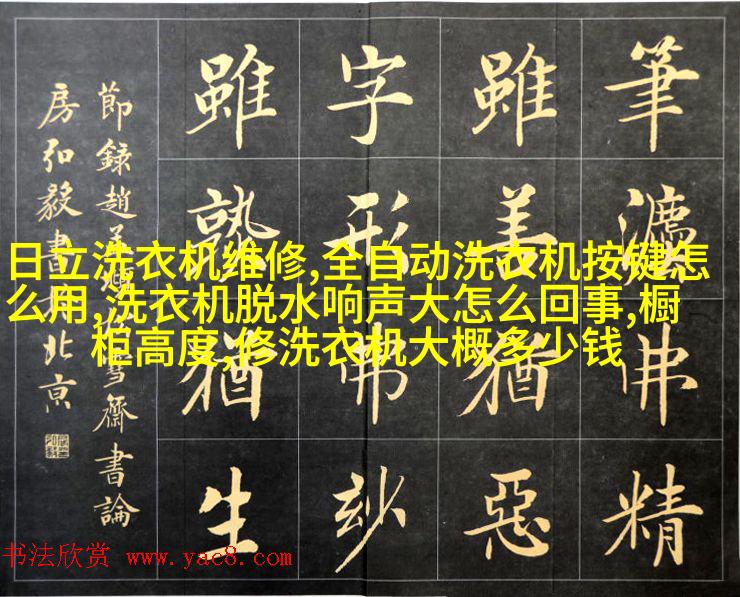 日立洗衣机维修,全自动洗衣机按键怎
么用,洗衣机脱水响声大怎么回事,橱
柜高度,修洗衣机大概多少钱
筆灋佛精
雖善猶惡
字形佛玅
雖熟猶生
節錄趙孟頫松雪齋書論
房弘毅書於北亰
书法欣赏 www.yac8.com